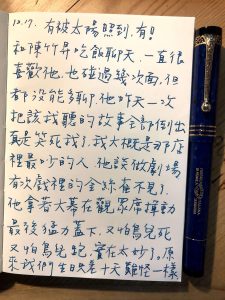 12.17. 有被太陽照到,有!
和陳竹昇吃飯聊天,一直很
喜歡他,也碰過幾次面,但
都沒能多聊,他昨天一次
把該我聽的故事全部倒出
真是笑死我了,我大概是那店
裡最吵的人,他說做劇場
有次戲裡的金絲雀不見了,
他拿著大幕在觀眾席揮動
最後猛力蓋下,又怕鳥兒死
又怕鳥兒跑,實在太妙了,原
來我們生日只差十天,難怪一樣